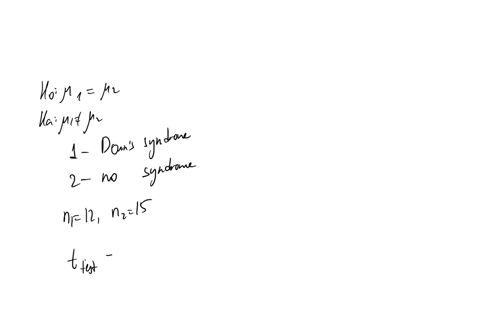 H₀: μ₁ = μ₂
Ha: μ₁ ≠ μ₂
1 - Down's syndrome
2 - no syndrome
n₁=12, n₂=15
t test -